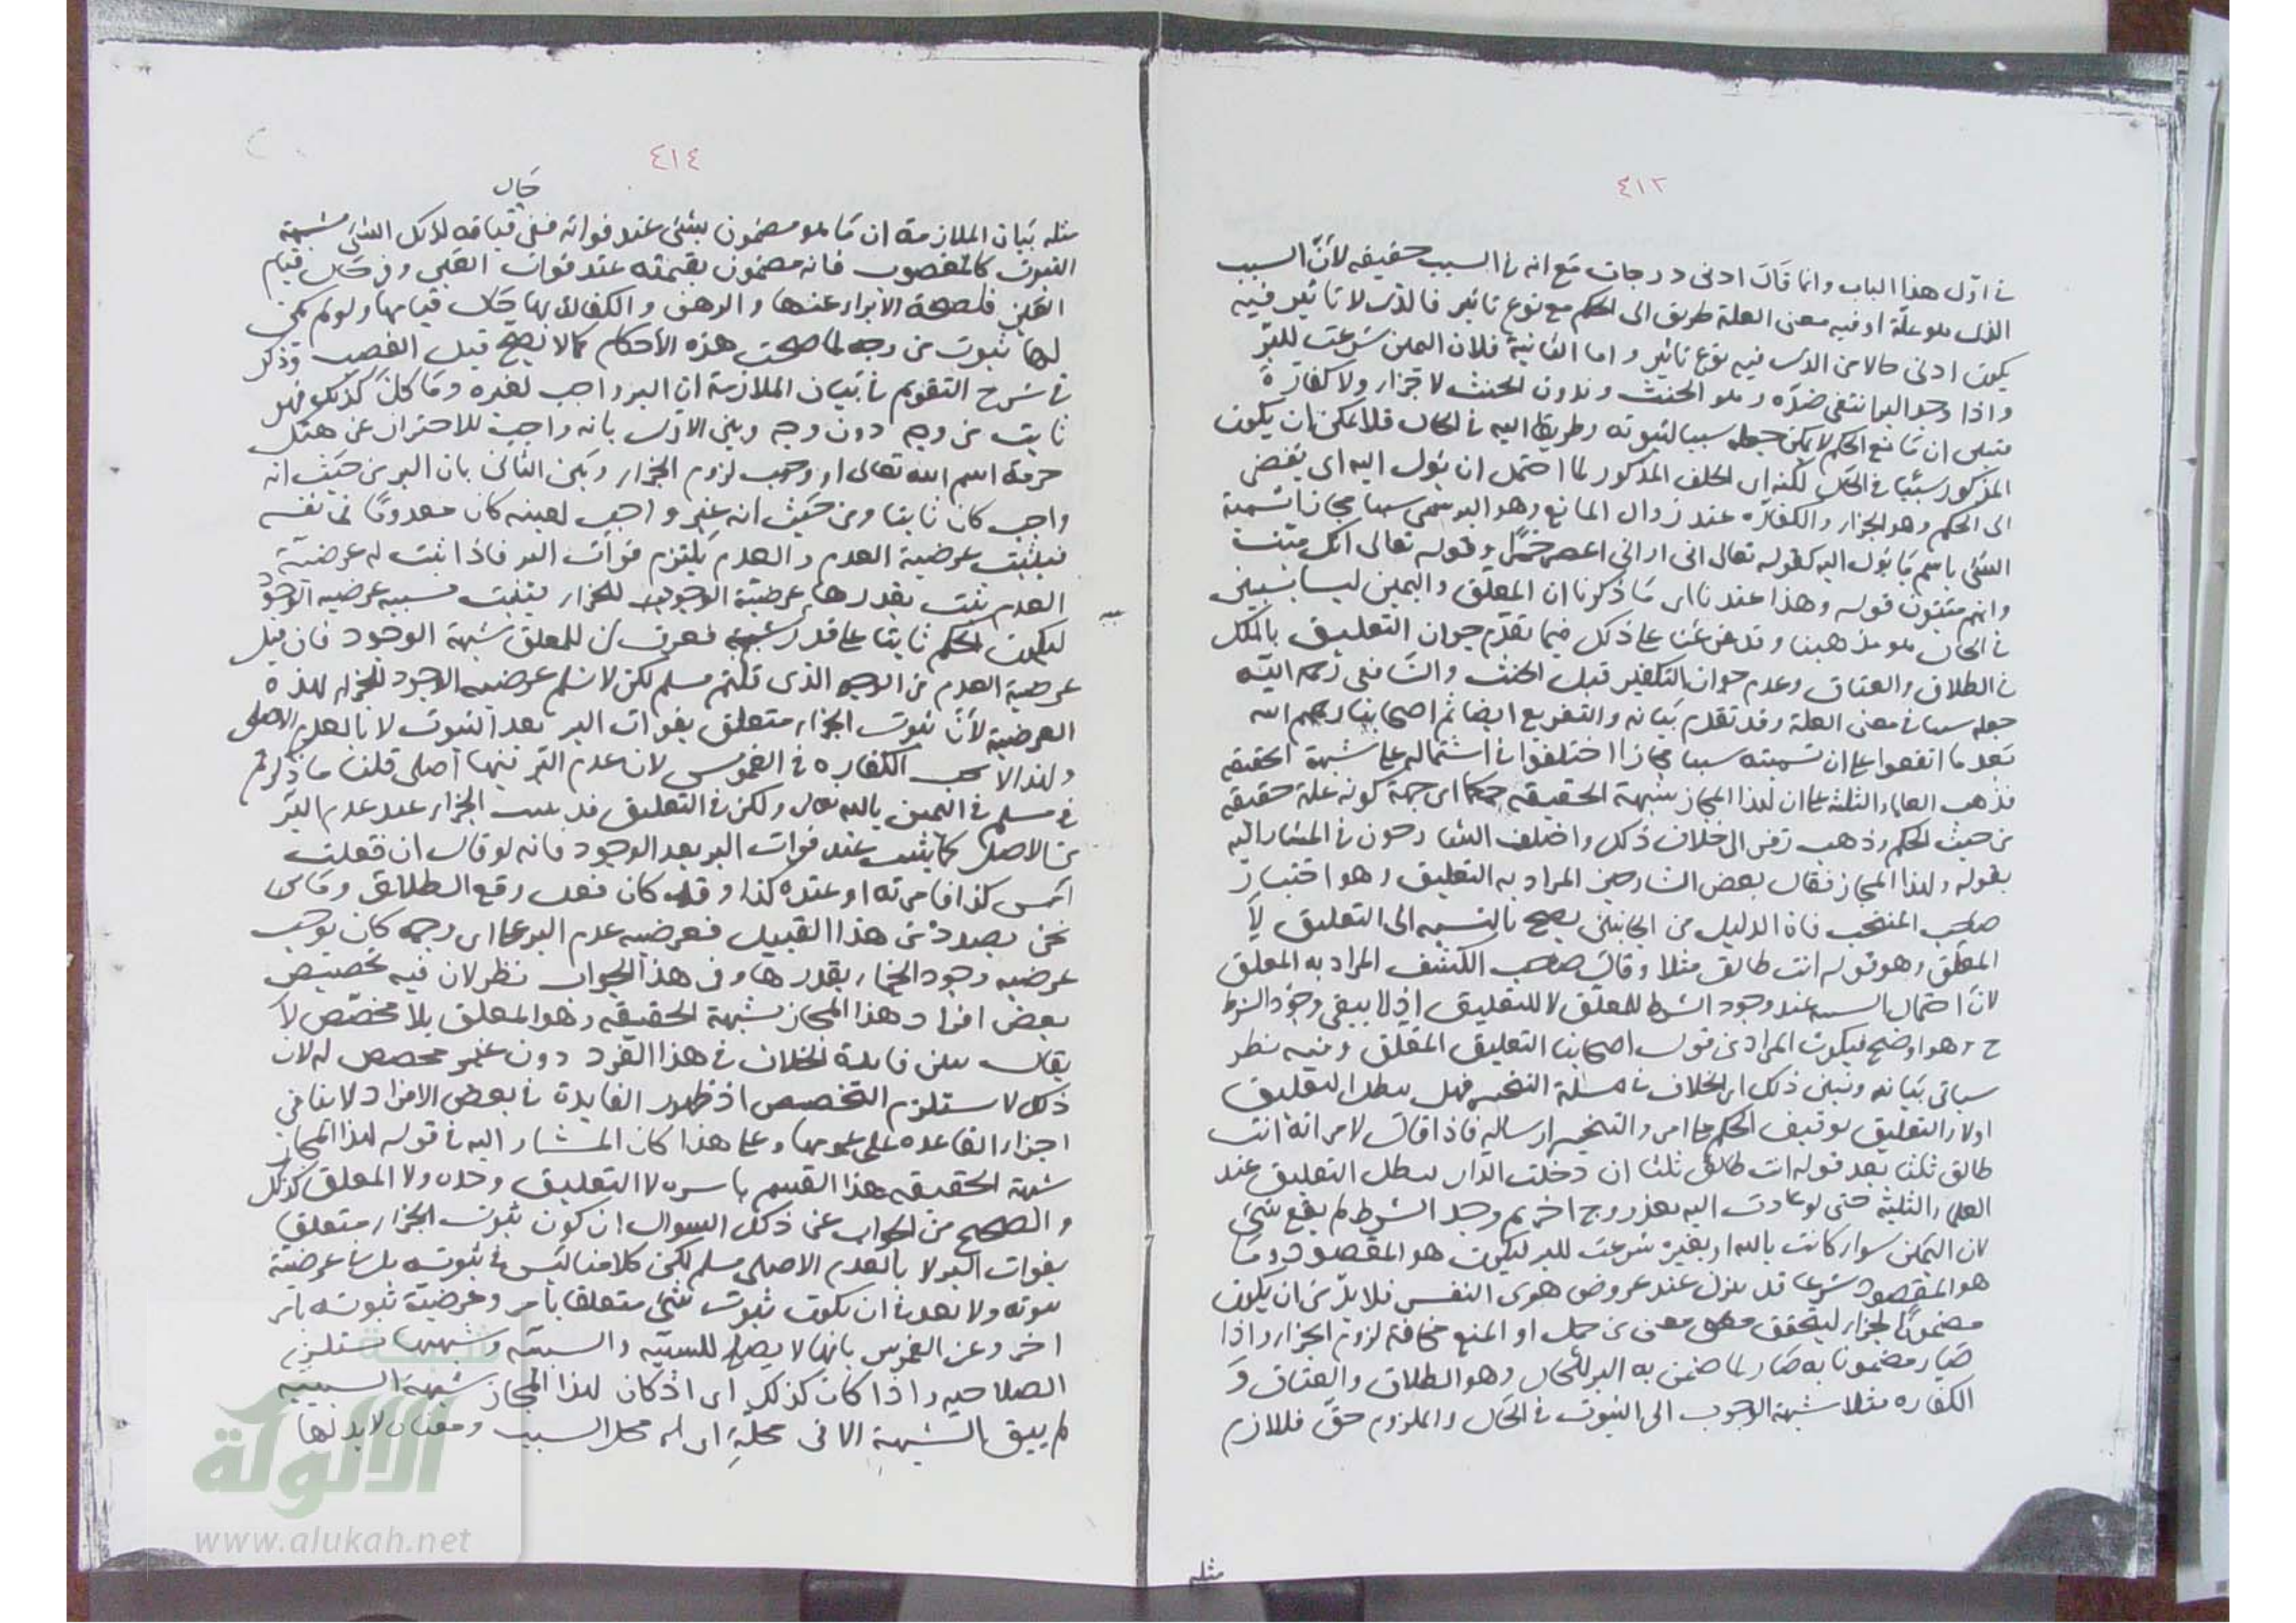 ٤١٣
في اول هذا الباب وانما قال ادنى درجات مع انه في السبب حقيقة لان السبب
الذي هو علة او فيه معنى العلة طريق الى الحكم مع نوع تاثير فالذي لا تاثير فيه
يكون ادنى حالا من الذي فيه نوع تاثير واما الثانية فلان اليمين شرعت للبر
واذا وجد البر انتفى ضده وهو الحنث وبدون الحنث لا جزاء ولا كفارة
فتبين ان مانع الحكم لا يمكن جعله سببا لثبوته وطريقا اليه في الحال فلا يمكن ان يكون
المذكور سببا في الحال لكنه اي الحلف المذكور لما احتمل ان يؤل اليه اي يفضي
الى الحكم وهو الجزاء والكفارة عند زوال المانع وهو البر سمي سببا مجازا تسمية
الشئ باسم ما يؤل اليه كقوله تعالى اني اراني اعصر خمرا وقوله تعالى انك ميت
وانهم ميتون قوله وهذا عندنا اي ما ذكرنا ان المعلق واليمين ليسا بسببين
في الحال هو مذهبنا وقد فرغنا على ذلك فيما تقدم جواز التعليق بالملك
في الطلاق والعتاق وعدم جواز التكفير قبل الحنث والشافعي رحمه الله
جعله سببا في معنى العلة وقد تقدم بيانه والتفريع ايضا ثم اصحابنا رحمهم الله
بعد ما اتفقوا على ان تسميته سببا مجازا اختلفوا في اشتماله على شبهة الحقيقة
فذهب العلماء الثلثة على ان لهذا المجاز شبهة الحقيقة حكما اي جهة كونه علة حقيقة
من حيث الحكم وذهب زفر الى خلاف ذلك واختلف الشارحون في المشار اليه
بقوله ولهذا المجاز فقال بعض الشارحين المراد به التعليق وهو اختيار
صاحب المنتخب فان الدليل من الجانبين يصح بالنسبة الى التعليق لا
المعلق وهو قوله انت طالق مثلا وقال صاحب الكشف المراد به المعلق
لان احتمال السببية عند وجود الشرط للمعلق لا للتعليق اذ لا يبقى وجود الشرط
ح وهو اوضح فيكون المراد من قول اصحابنا التعليق المعلق وفيه نظر
سياتي بيانه وتبين ذلك اي الخلاف في مسئلة التنجيز هل يبطل التعليق
اولا والتعليق توقيف الحكم على امر والتنجيز ارساله فاذا قال لامراته انت
طالق ثلثا بعد قوله انت طالق ثلثا ان دخلت الدار يبطل التعليق عند
العلماء الثلثة حتى لو عادت اليه بعد زوج اخر ثم وجد الشرط لم يقع شئ
لان اليمين سواء كانت بالله او بغيره شرعت للبر ليكون هو المقصود وما
هو المقصود شرعا قد يزل عند عروض هوى النفس فلا بد من ان يكون
مضمونا بالجزاء ليتحقق معنى من حمل او المنع مخافة لزوم الجزاء واذا
صار مضمونا به صار لما ضمن به البر للحال وهو الطلاق والعتاق و
الكفارة مثلا شبهة الوجوب اي الثبوت في الحال والملزوم حق فاللازم
مثله
٤١٤
حال
مثله بيان الملازمة ان ما هو مضمون بشئ عند فواته ففي قيامه لذلك الشئ شبهة
الثبوت كالمغصوب فانه مضمون بقيمته عند فوات العين وفي حال قيام
العين فلصحة الابراء عنها والرهن والكفالة بها حال قيامها ولو لم يكن
لها ثبوت من وجه لما صحت هذه الأحكام كما لا يصح قبل الغصب وذكر
في شرح التقويم في بيان الملازمة ان البر واجب لغيره وما كان كذلك فهو
ثابت من وجه دون وجه وبين الاول بانه واجب للاحتراز عن هتك
حرمة اسم الله تعالى او وجب لزوم الجزاء وبين الثاني بان البر من حيث انه
واجب كان ثابتا ومن حيث انه غير واجب لعينه كان معدوما في نفسه
فيثبت عرضية العدم والعدم يلتزم فوات البر فاذا ثبت له عرضية
العدم يثبت بقدرها عرضية الوجود للجزاء يثبت سببه عرضية الوجود
ليكون الحكم ثابتا على قدر سببه فعرف ان للمعلق شبهة الوجود فان قيل
عرضية العدم من الوجه الذي قلتم مسلم لكن لا نسلم عرضية الوجود للجزاء لهذه
العرضية لأن ثبوت الجزاء متعلق بفوات البر بعد الثبوت لا بالعدم الاصلي
ولهذا لا تجب الكفارة في الغموس لان عدم البر فيها اصلي قلنا ما ذكرتم
في مسلم في اليمين بالله تعالى ولكن في التعليق قد يثبت الجزاء عند عدم البر
من الاصل كما يثبت عند فوات البر بعد الوجود فانه لو قال ان فعلت
امس كذا فامراته او عبده كذا وقد كان فعل وقع الطلاق وما
نحن بصدده من هذا القبيل فعرضية عدم البر على اي وجه كان يوجب
عرضية وجود الجزاء بقدرها وفي هذا الجواب نظر لان فيه تخصيص
بعض افراد هذا المجاز بشبهة الحقيقة وهو المعلق بلا مخصص لا
يقال يبين فايدة الخلاف في هذا الفرد دون غيره مخصص له لان
ذلك لا يستلزم التخصيص اذ ظهور الفايدة في بعض الافراد لا ينافي
اجزاء القاعدة على عمومها وعلى هذا كان المشار اليه في قوله لهذا المجاز
شبهة الحقيقة هذا القسم باسره لا التعليق وحده ولا المعلق كذلك
والصحيح من الجواب عن ذلك السوال ان كون ثبوت الجزاء متعلقا
بفوات البر لا بالعدم الاصلي مسلم لكن كلامنا ليس في ثبوته بل في عرضية
ثبوته ولا بعد في ان يكون ثبوت شئ متعلقا بامر وعرضية ثبوته بامر
اخر وعن الغموس بانها لا يصلح للسببية والسببية وشبهها يستلزم
الصلاحية واذا كان كذلك اي اذ كان لهذا المجاز شبهة السببية
لم يبق الشبهة الا في محله اي محل السبب ومعناه لابد لها
الألوكة
www.alukah.net